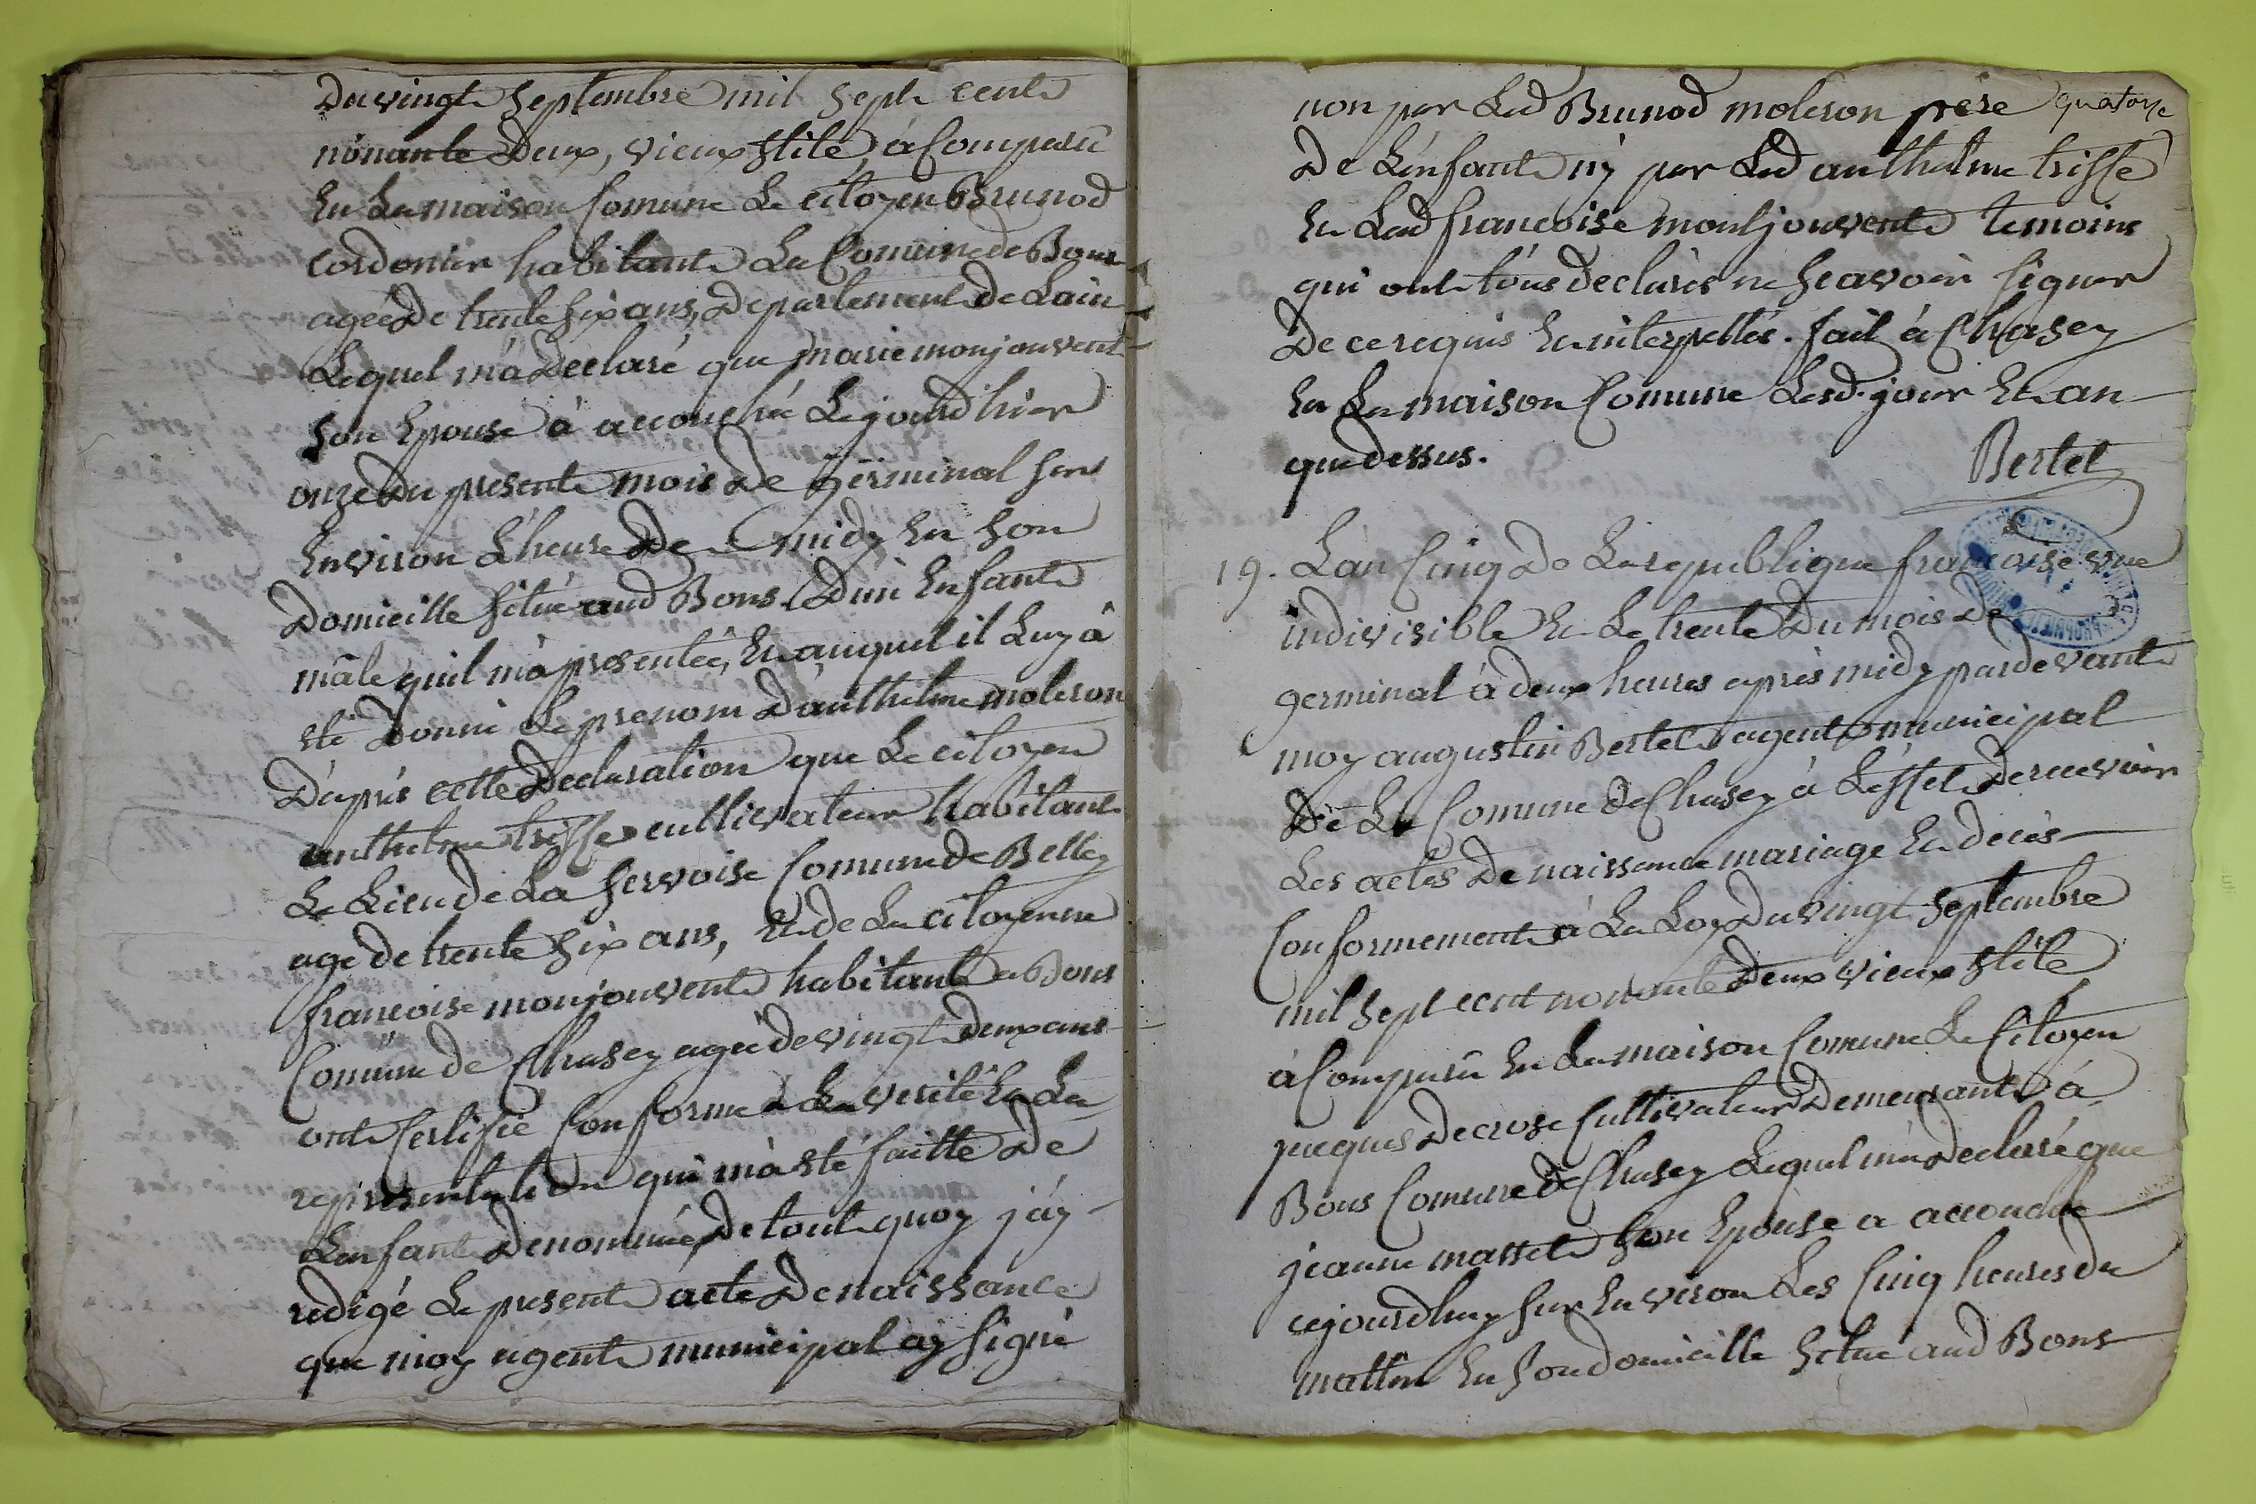 Du vingt septembre mil sept cent
nonante Deux, vieux stile, à Comparû
En La maison Comune Le citoyen Brunod
cordonier habitant La Comune de Bons
ageé De trente six ans, Departement De Lain
Lequel m'à Declaré que marie monjouvent
son Epouse à accouchée Le jourd'hier
onze Du present mois De germinal sur
Environ L'heure De midy En son
Domicille situé aud Bons D'un Enfant
mâle quil m'à presentée, Et auquel il Luy à
été Donné Le prenom D'anthelme moleron
D'après cette Declaration que Le citoyen
anthelme trisse cultivateur habitant
Le Lieu de La servoise Comune de Belley
agé de trente six ans, Et de La citoyenne
francoise monjouvent habitante a Bons
Comune de Chasey ageé de vingt deux ans
ont Certifié Conforme à La verité Et La
representation qui m'à été faitte De
L'enfant Denommée, De tout quoy j'ay
redigé Le present acte De naissance
que moy agent municipal ay signé
non par Led Brunod moleron père quatorze
De L'enfant ny par Led anthelme trisse
Et Lad francoise montjouvent temoins
qui ont tous declarés ne scavoir signer
De ce requis Et interpellés. fait à Chasey
En La maison Comune Lesd. jour Et an
que dessus.
Bertet
19. L'an Cinq De La republique francoise une
indivisible Et Le trente Du mois De
germinal à deux heures après midy pardevant
moy augustin Bertet agent municipal
De La Comune de Chasey à L'effet De recevoir
Les actes De naissance mariage Et decès
Conformement à La Loy Du vingt septembre
mil sept cent nonante Deux vieux stile
à Comparû En La maison Comune Le Citoyen
jacques Decrose Cultivateur Demeurant à
Bons Comune de Chasey Lequel m'à Declaré que
jeanne masset son Epouse a accouché
cejourdhuy sur Environ Les Cinq heures du
mattin En son domicille situé aud Bons